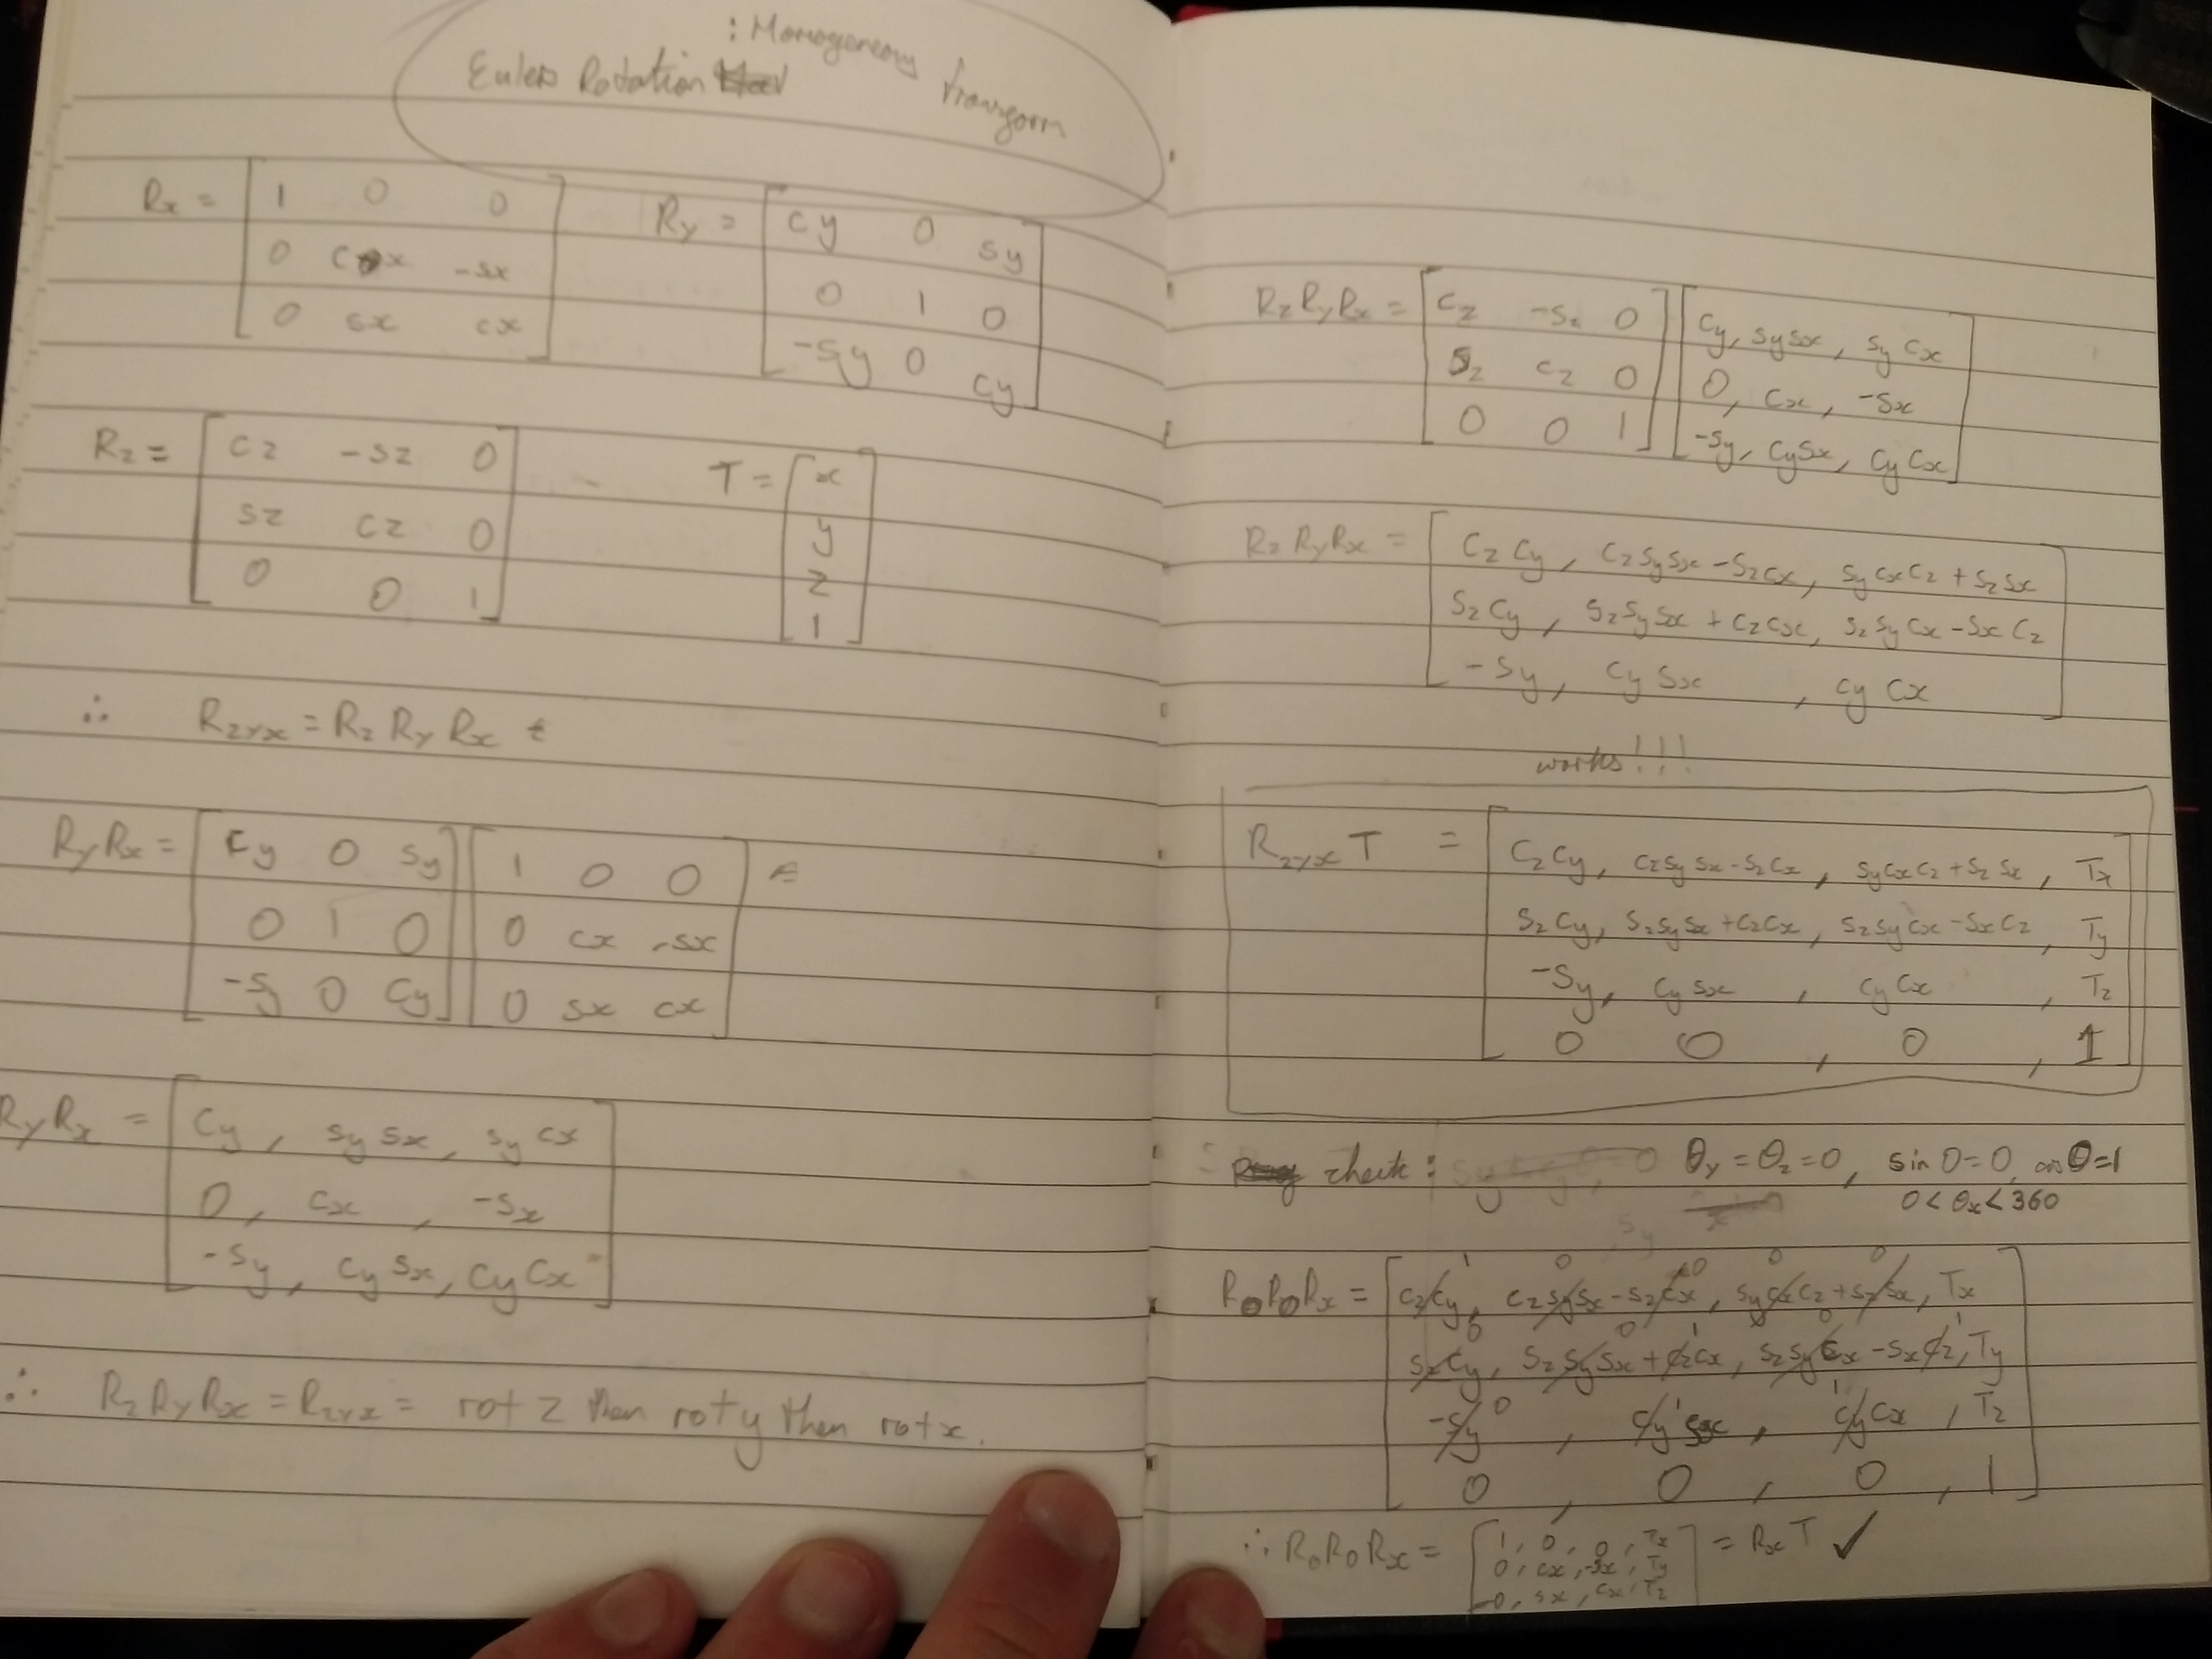 : Homogeneous transform
Eulers Rotation
Rx = [ 1 0 0
0 cx -sx
0 sx cx ]
Ry = [ cy 0 sy
0 1 0
-sy 0 cy ]
Rz = [ cz -sz 0
sz cz 0
0 0 1 ]
T = [ x
y
z
1 ]
∴ Rzyx = Rz Ry Rx
RyRx = [ cy 0 sy ] [ 1 0 0 ]
[ 0 1 0 ] [ 0 cx -sx ]
[ -sy 0 cy ] [ 0 sx cx ]
RyRx = [ cy , sy sx , sy cx
0 , cx , -sx
-sy , cy sx , cy cx ]
∴ Rz Ry Rx = Rzyx = rot z then rot y then rot x.
RzRyRx = [ cz -sz 0 ] [ cy, sysx, sy cx ]
[ sz cz 0 ] [ 0, cx, -sx ]
[ 0 0 1 ] [ -sy, cysx, cy cx ]
Rz RyRx = [ cz cy , cz sy sx - sz cx , sy cx cz + sz sx
sz cy , sz sy sx + cz cx , sz sy cx - sx cz
-sy , cy sx , cy cx ]
works!!!
Rzyx T = [ cz cy , cz sy sx - sz cx , sy cx cz + sz sx , Tx
sz cy , sz sy sx + cz cx , sz sy cx - sx cz , Ty
-sy , cy sx , cy cx , Tz
0 0 , 0 , 1 ]
check : θy = θz = 0 , sin 0 = 0, cos 0 = 1
0 < θx < 360
R0R0Rx = [ cz cy , cz sy sx - sz cx , sy cx cz + sz sx , Tx
sz cy , sz sy sx + cz cx , sz sy cx - sx cz , Ty
-sy 0 , cy 1 sx , cy 1 cx , Tz
0 , 0 , 0 , 1 ]
∴ R0R0Rx = [ 1, 0, 0, Tx
0, cx, -sx, Ty
0, sx, cx, Tz ] = Rx T ✓